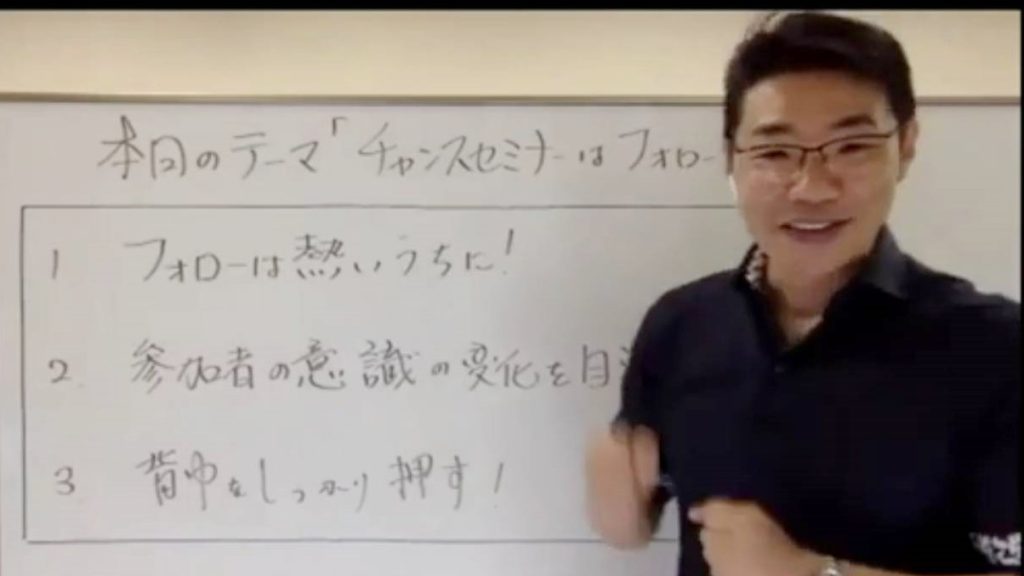 本日のテーマ「チャンスセミナーはフォロー
1 フォローは熱いうちに!
2. 参加者の意識の変化を
3 背中をしっかり押す!